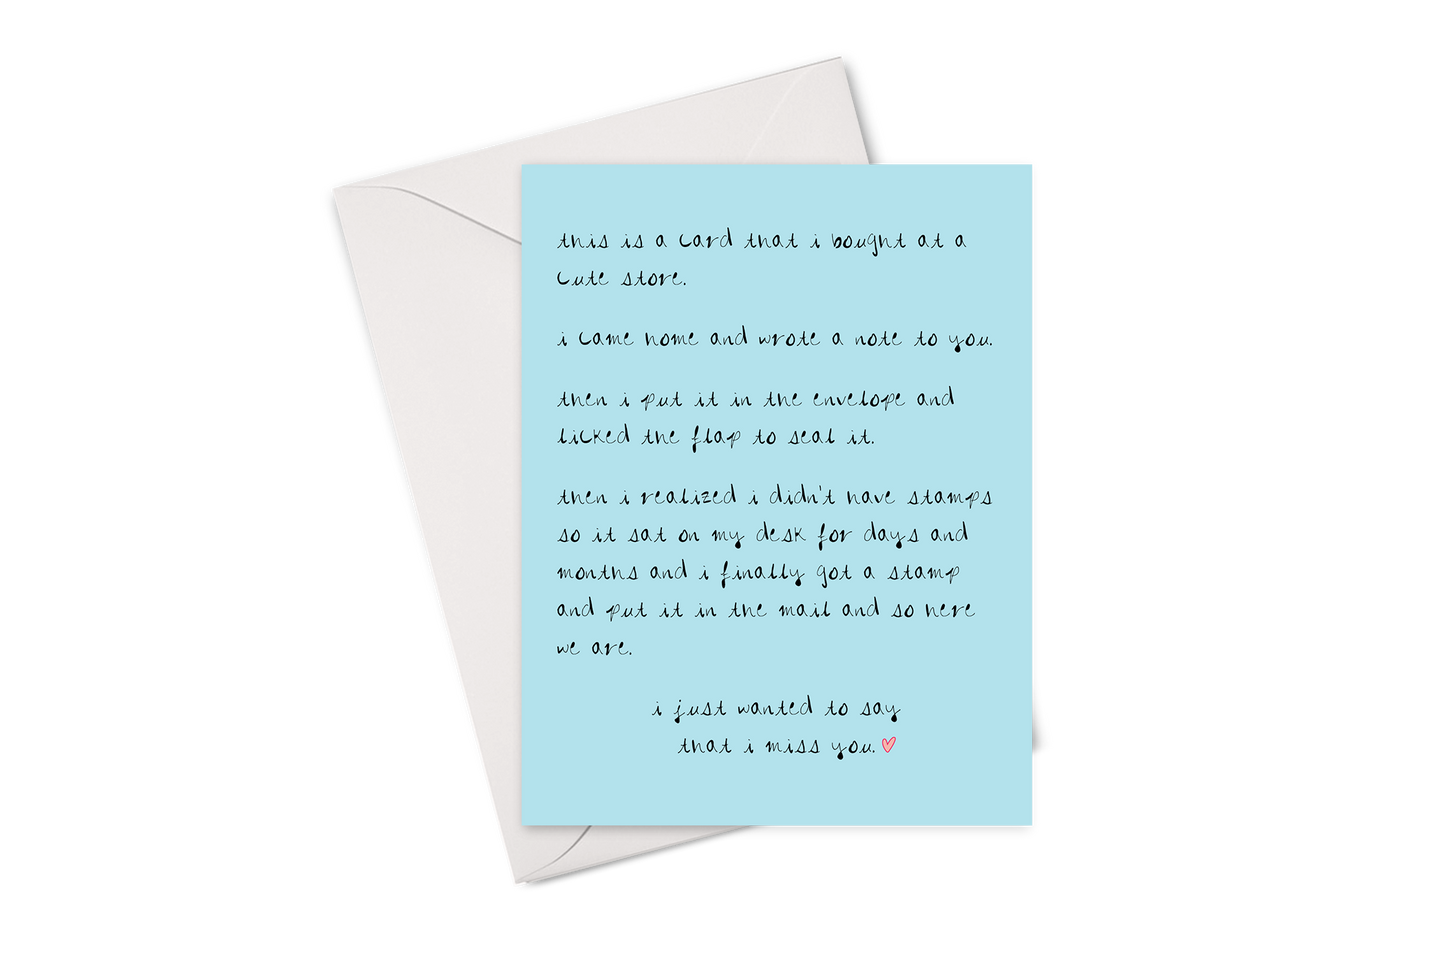 this is a card that i bought at a
cute store.
i came home and wrote a note to you.
then i put it in the envelope and
licked the flap to seal it.
then i realized i didn't have stamps
so it sat on my desk for days and
months and i finally got a stamp
and put it in the mail and so here
we are.
i just wanted to say
that i miss you.